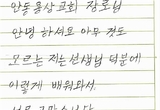 안동용상교회 장로님
안녕하셔요 아무것도
모르는 저는 선생님 덕분에
이렇게 배워와서